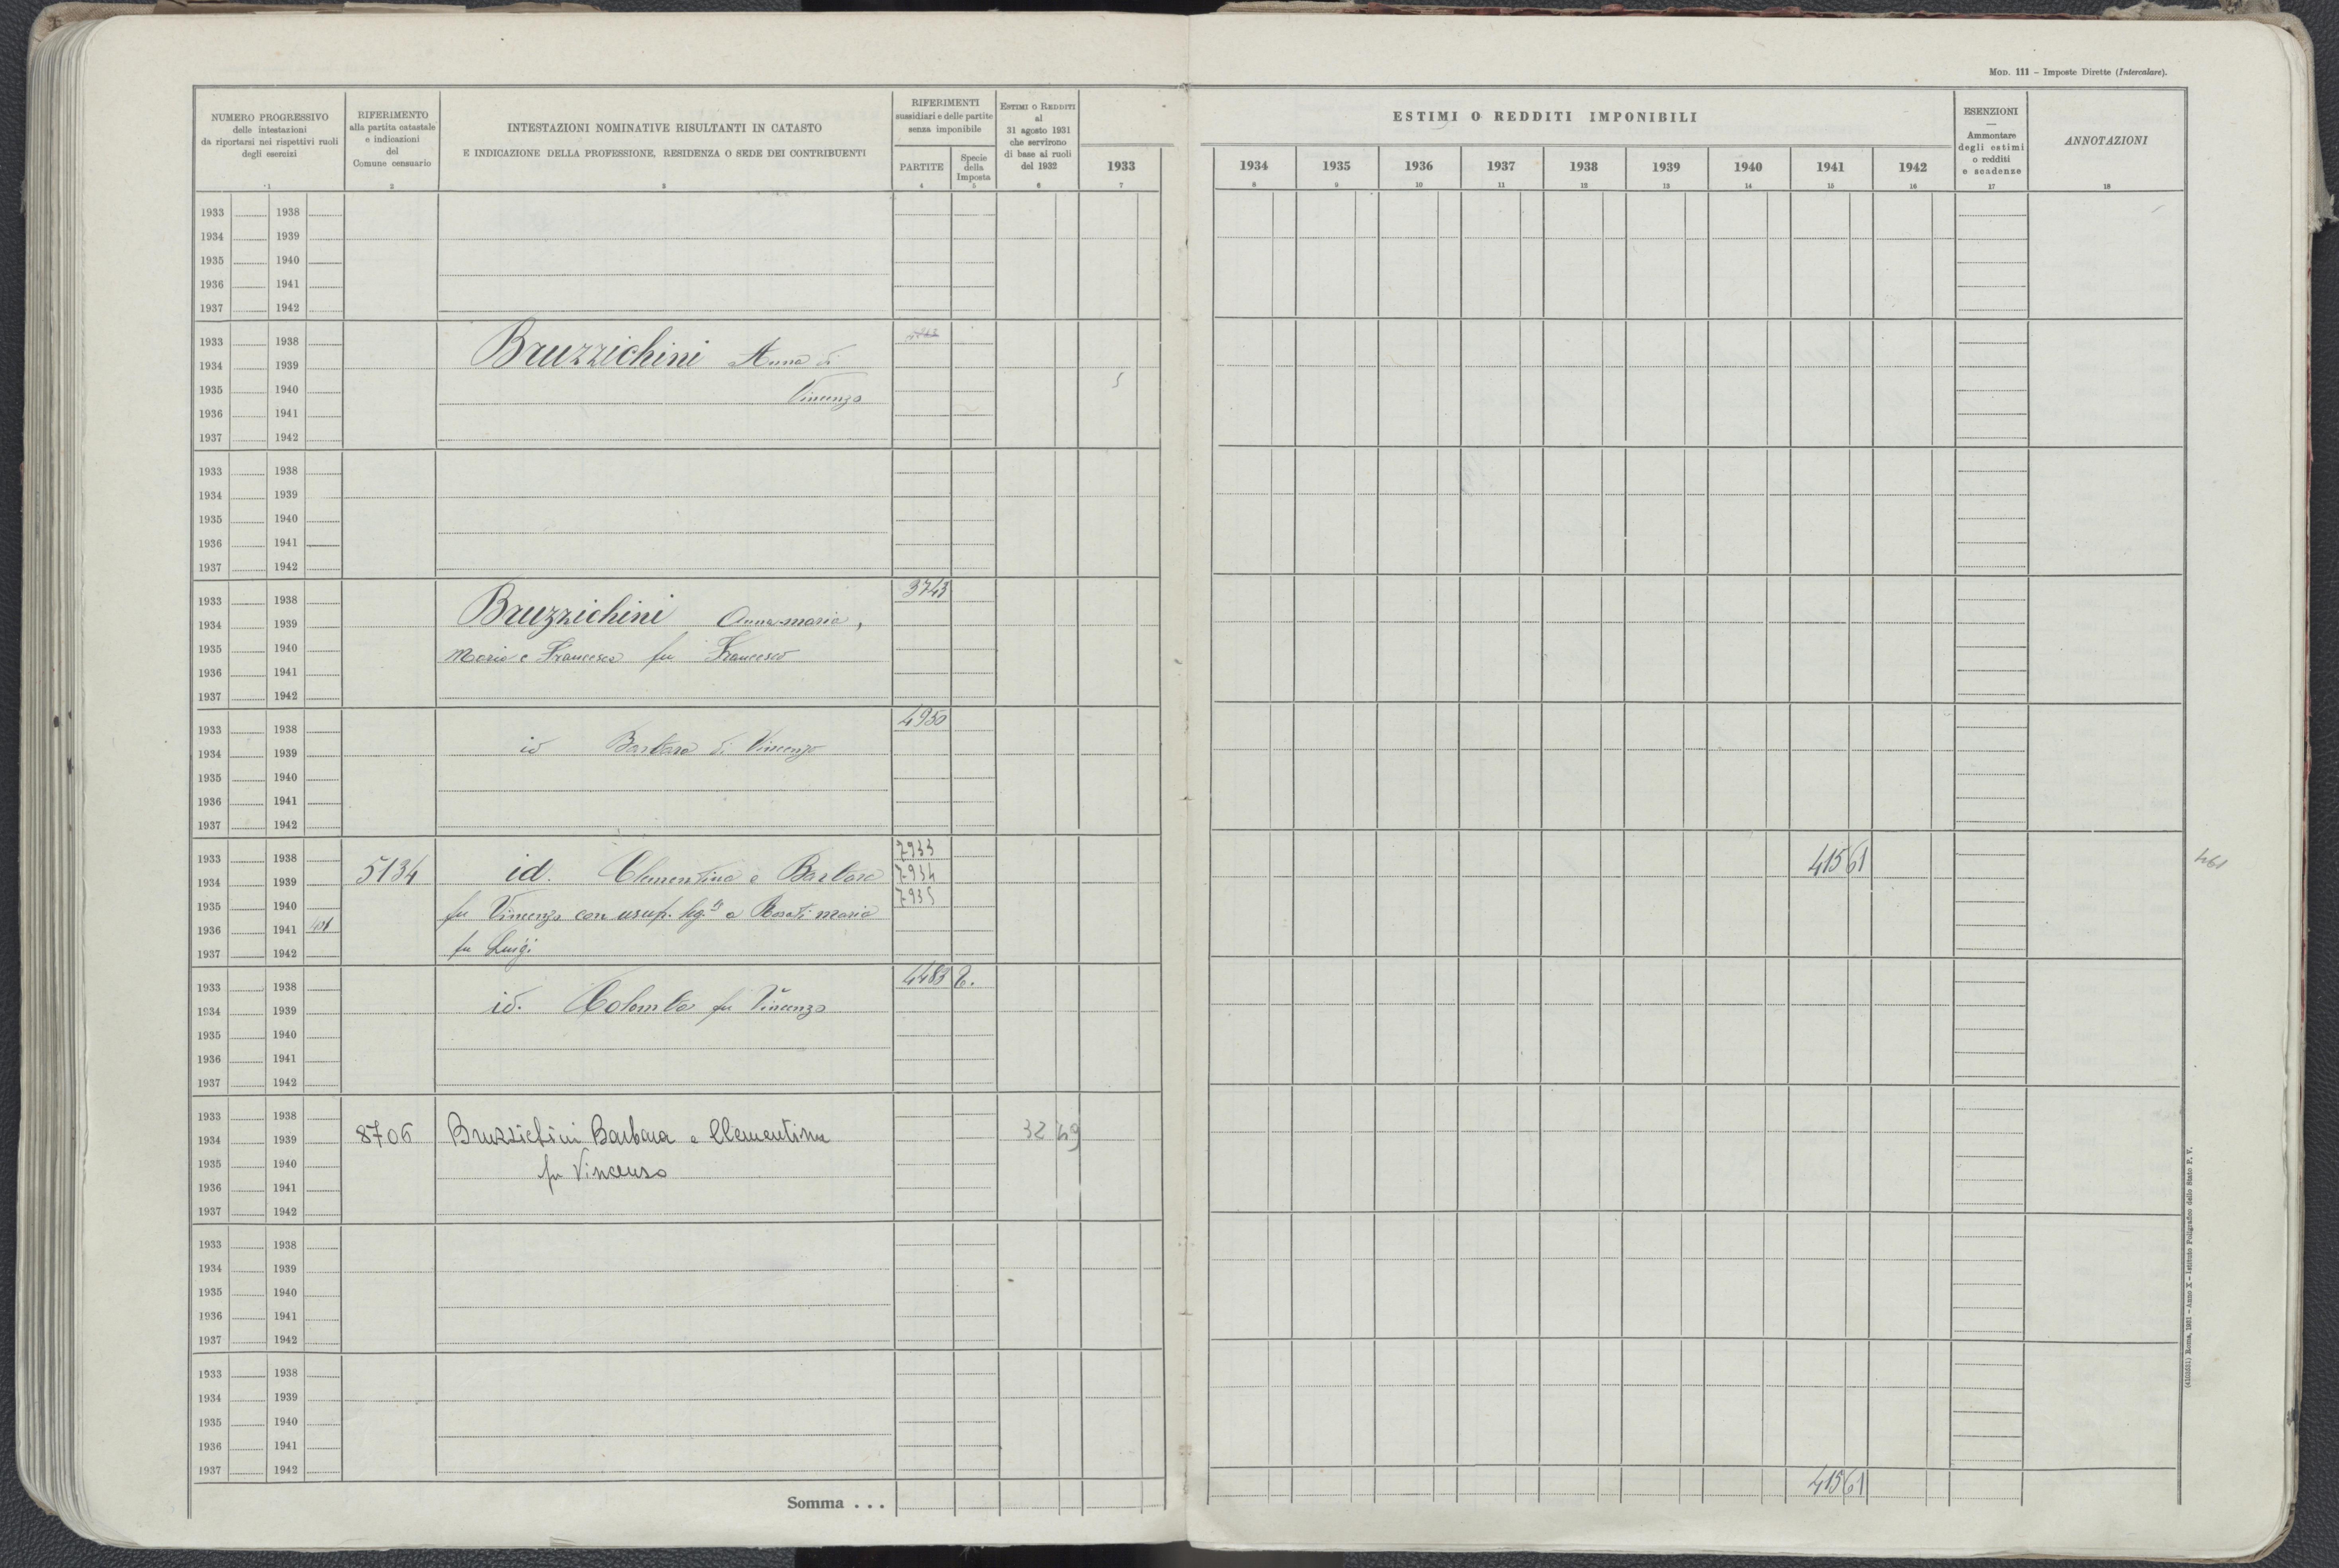 MOD. 111 – Imposte Dirette (Intercalare).
NUMERO PROGRESSIVO
delle intestazioni
da riportarsi nei rispettivi ruoli
degli esercizi
1
RIFERIMENTO
alla partita catastale
e indicazioni
del
Comune censuario
2
INTESTAZIONI NOMINATIVE RISULTANTI IN CATASTO
E INDICAZIONE DELLA PROFESSIONE, RESIDENZA O SEDE DEI CONTRIBUENTI
3
RIFERIMENTI
sussidiari e delle partite
senza imponibile
PARTITE
4
Specie
della
Imposta
5
ESTIMI O REDDITI
al
31 agosto 1931
che servirono
di base ai ruoli
del 1932
6
1933
7
ESTIMI O REDDITI IMPONIBILI
1934 1935 1936 1937 1938 1939 1940 1941 1942
8 9 10 11 12 13 14 15 16
ESENZIONI
—
Ammontare
degli estimi
o redditi
e scadenze
17
ANNOTAZIONI
18
1933 1938
1934 1939
1935 1940
1936 1941
1937 1942
1933 1938
1934 1939 Bruzzichini Anna di
1935 1940 Vincenzo
1936 1941
1937 1942
1933 1938
1934 1939
1935 1940
1936 1941
1937 1942
1933 1938 3743
1934 1939 Bruzzichini Anna-maria,
1935 1940 Maria e Francesca fu Francesco
1936 1941
1937 1942
1933 1938 4950
1934 1939 id Barbara di Vincenzo
1935 1940
1936 1941
1937 1942
1933 1938 7933 41561 461
1934 1939 5134 id. Clementina e Barbara 7934
1935 1940 fu Vincenzo con usuf. leg. a Rosati maria 7935
1936 1941
1937 1942 fu Luigi
1933 1938 4483
1934 1939 id. Colomba fu Vincenzo
1935 1940
1936 1941
1937 1942
1933 1938
1934 1939 8706 Bruzzichini Barbara e Clementina 32 49
1935 1940 fu Vincenzo
1936 1941
1937 1942
1933 1938
1934 1939
1935 1940
1936 1941
1937 1942
1933 1938
1934 1939
1935 1940
1936 1941
1937 1942
Somma . . . 41561
(4103531) Roma, 1931 – Anno X – Istituto Poligrafico dello Stato P. V.